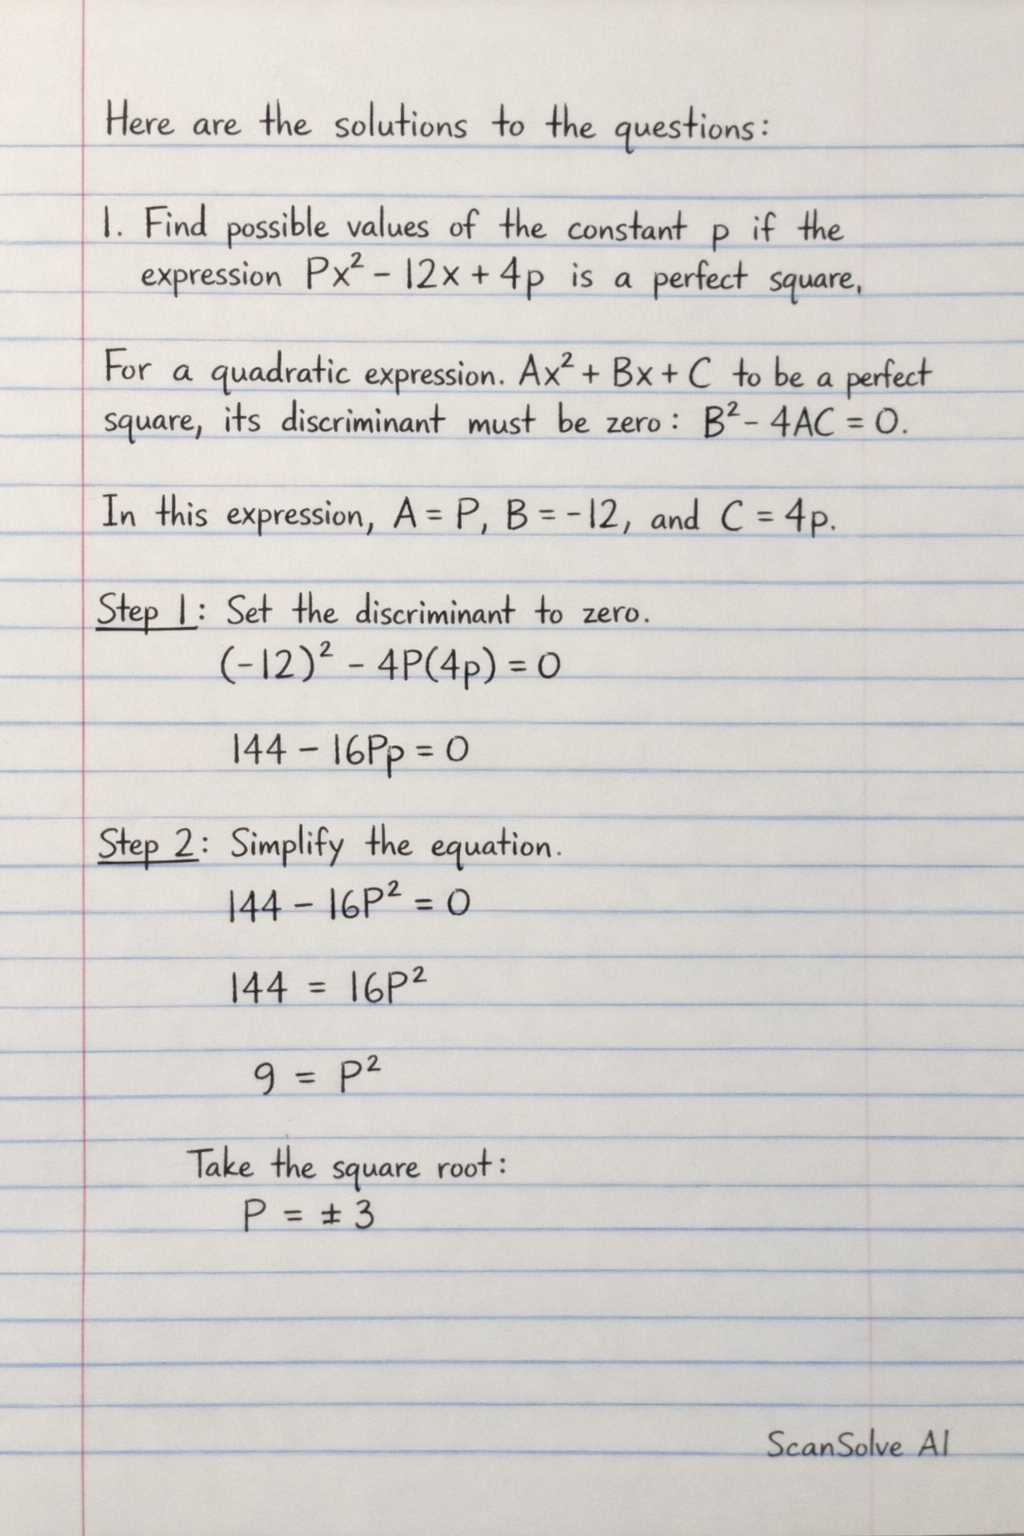 Here are the solutions to the questions:
1. Find possible values of the constant p if the
expression Px² - 12x + 4p is a perfect square,
For a quadratic expression. Ax² + Bx + C to be a perfect
square, its discriminant must be zero: B² - 4AC = 0.
In this expression, A = P, B = -12, and C = 4p.
Step 1: Set the discriminant to zero.
(-12)² - 4P(4p) = 0
144 - 16Pp = 0
Step 2: Simplify the equation.
144 - 16P² = 0
144 = 16P²
9 = P²
Take the square root:
P = ± 3
ScanSolve AI